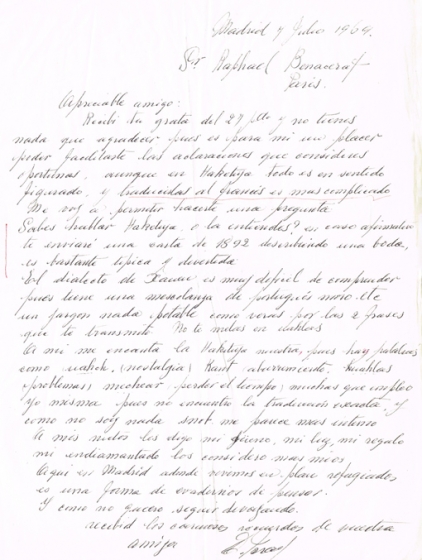 Madrid 7 Julio 1969.
Sr Raphael Benazeraf
Paris.
Apreciable amigo:
Recibí tu grata del 27 pdo y no tienes
nada que agradecer pues es para mi un placer
poder facilitarte las aclaraciones que consideres
oportunas, aunque en Haketiya todo es en sentido
figurado, y traducidas al francés es mas complicado
Me voy a permitir hacerte una pregunta
Sabes hablar Haketiya, o la entiendes? en caso afirmativo
te enviaré una carta de 1892 describiendo una boda,
es bastante típica y divertida
El dialecto de es muy difícil de comprender
pues tiene una mezcolanza de portugués moro etc
un jargon nada potable como verás por las 2 frases
que te transmito. No te metas en
A mi me encanta la Haketiya nuestra, pues hay palabras
como (nostalgia) aburrimiento,
(problemas) perder el tiempo, muchas que empleo
yo misma pues no encuentro la traducción exacta. y
como no soy nada snob me parece mas intimo
A mis nietos les digo mi bueno, mi ley, mi regalo
mi endiamantado los considero mas mios.
Aqui en Madrid adonde vivimos en plan refugiados
es una forma de de pensar.
Y como no quiero seguir
recibid los cariñosos recuerdos de vuestra
amiga